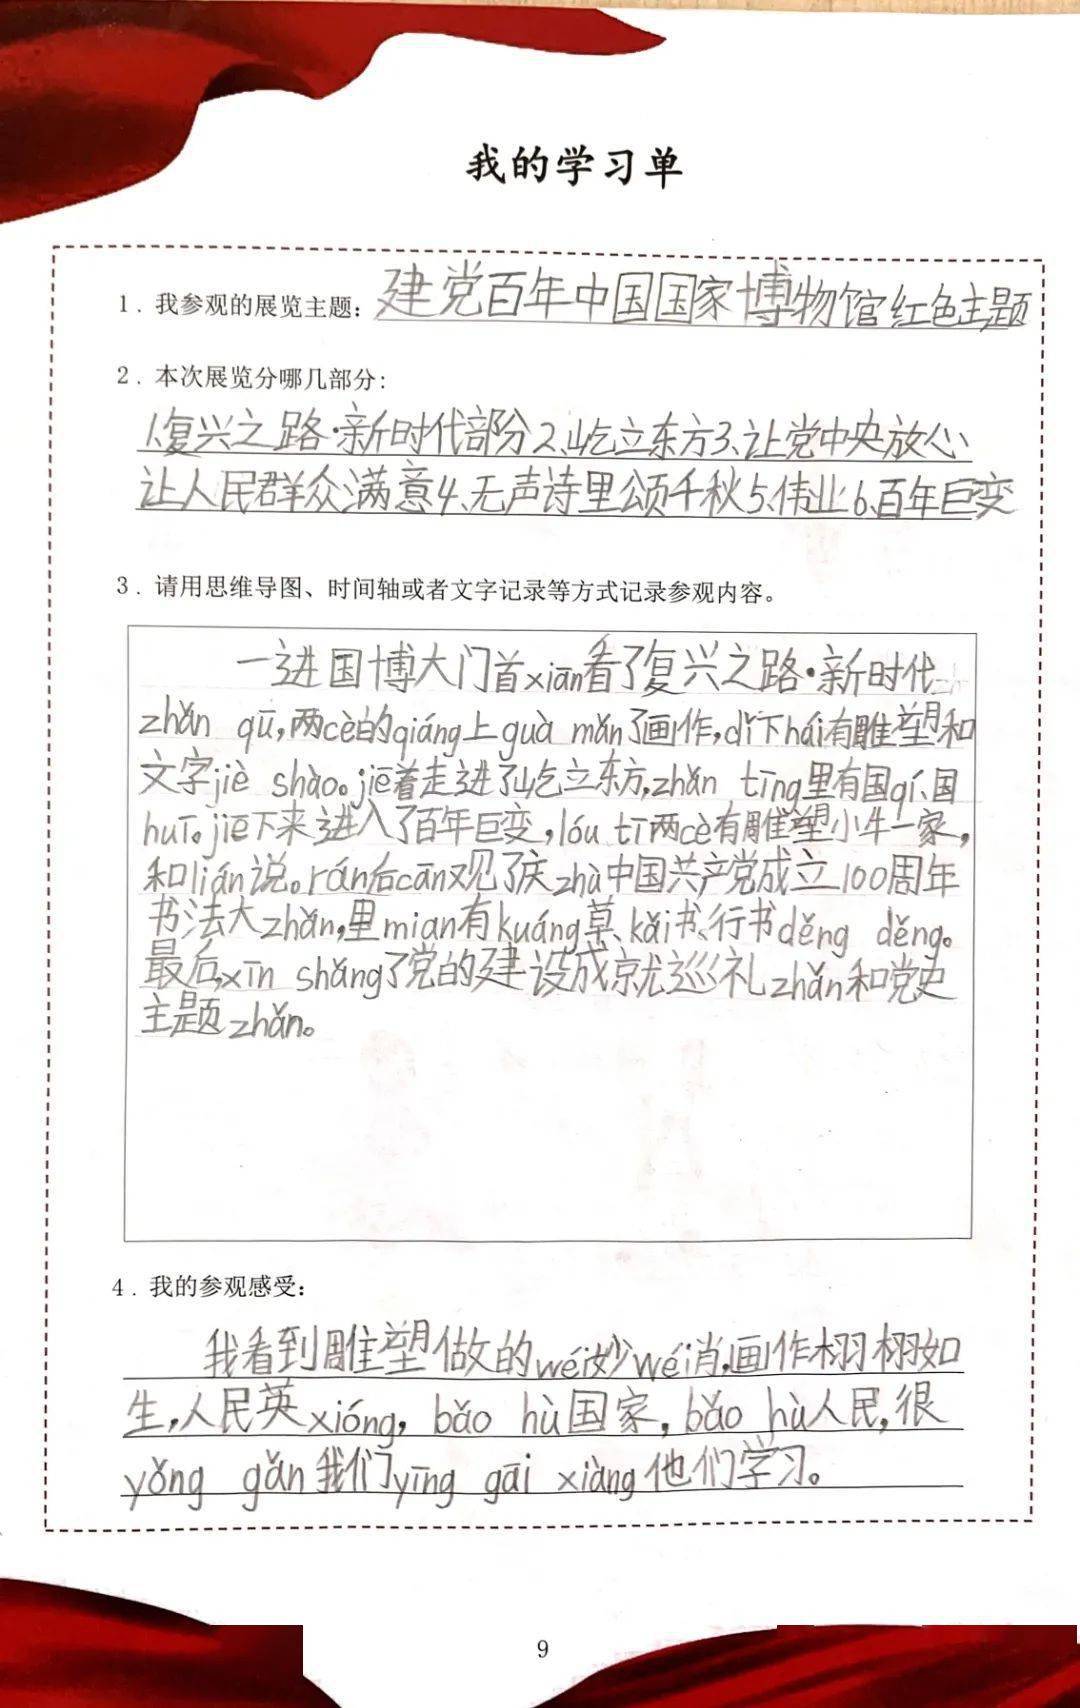 我的学习单
1. 我参观的展览主题: 建党百年中国国家博物馆红色主题
2. 本次展览分哪几部分:
1.复兴之路·新时代部分2、屹立东方3、让党中央放心
让人民群众满意4、无声诗里颂千秋5、伟业6、百年巨变
3. 请用思维导图、时间轴或者文字记录等方式记录参观内容。
一进国博大门首xiān看了复兴之路·新时代
zhǎn qū,两cè的qiáng上guà mǎn了画作,dǐ下hái有雕塑和
文字jiè shào。jiē着走进了屹立东方,zhǎn tīng里有国qí、国
huī。jiē下来进入了百年巨变,lóu tī两cè有雕塑小牛一家,
和lián说。rán后cān观了庆zhù中国共产党成立100周年
书法大zhǎn,里mian有kuáng草、kǎi书、行书děng děng。
最后,xīn shǎng了党的建设成就巡礼zhǎn和党史
主题zhǎn。
4. 我的参观感受:
我看到雕塑做的wéi妙wéi肖,画作栩栩如
生,人民英xióng,bǎo hù国家,bǎo hù人民,很
yǒng gǎn我们yīng gāi xiàng他们学习。
9